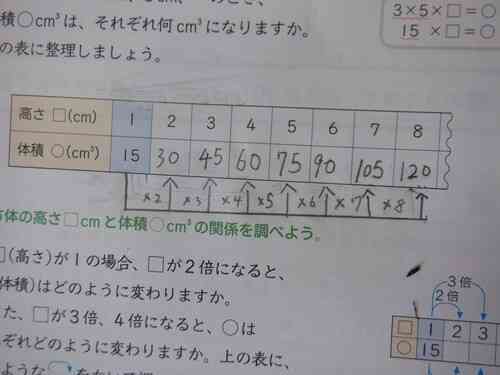 積○cm³は、それぞれ何cm³になりますか。
の表に整理しましょう。
3×5×□=○
15 ×□=○
高さ □(cm) 1 2 3 4 5 6 7 8
体積 ○(cm³) 15 30 45 60 75 90 105 120
×2 ×3 ×4 ×5 ×6 ×7 ×8
方体の高さ□cmと体積○cm³の関係を調べよう。
(高さ)が1の場合、□が2倍になると、
体積)はどのように変わりますか。
た、□が3倍、4倍になると、○は
ぞれどのように変わりますか。上の表に、
3倍
2倍
□ 1 2 3
○ 15